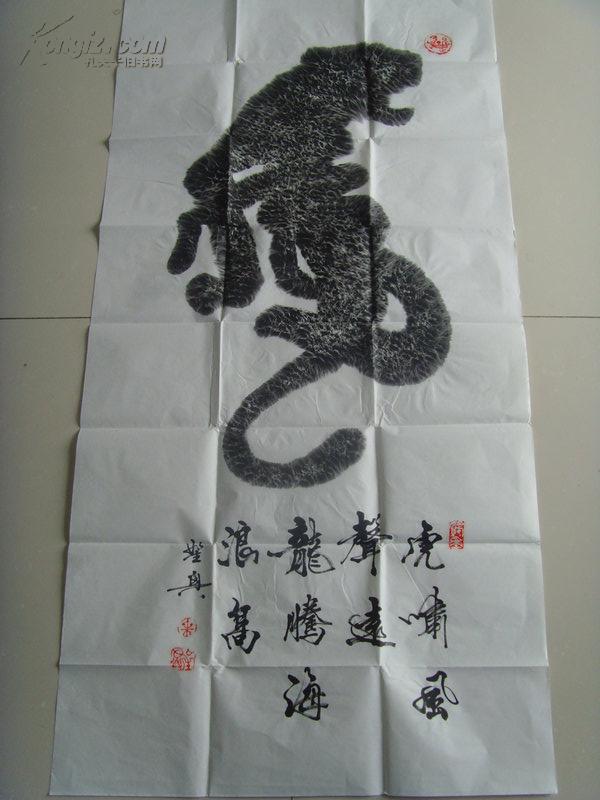 Kongfz.com
孔夫子旧书网
虎
虎嘯風
聲遠
龍騰海
浪高